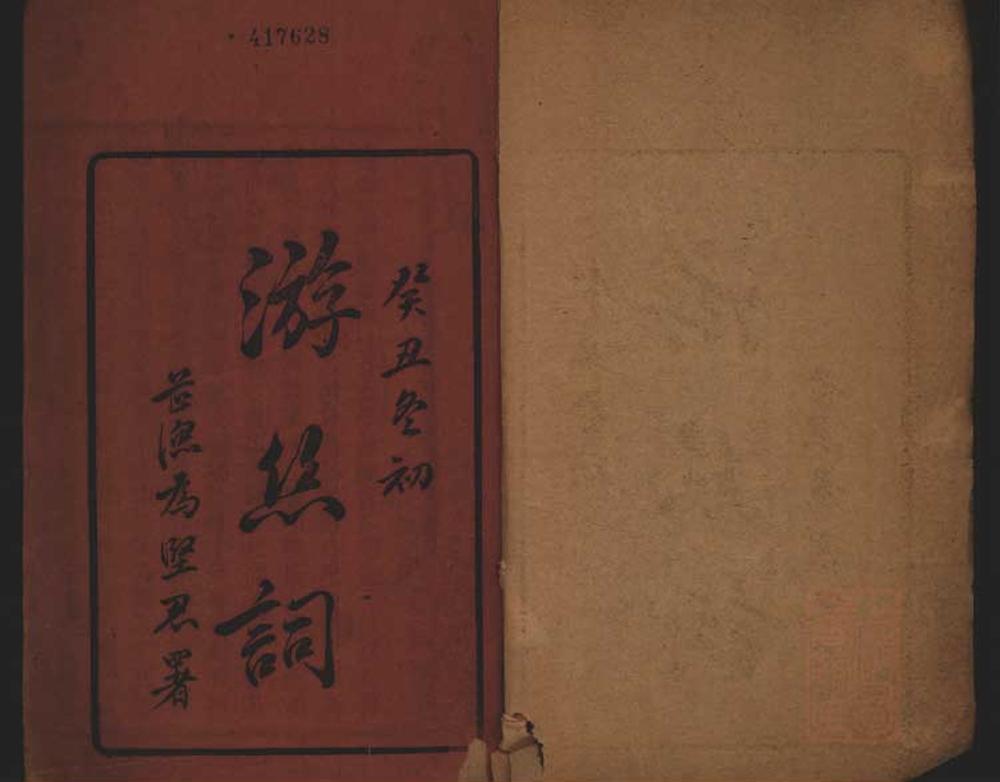 417628
癸丑冬初
游絲詞
芷漁為堅忍署